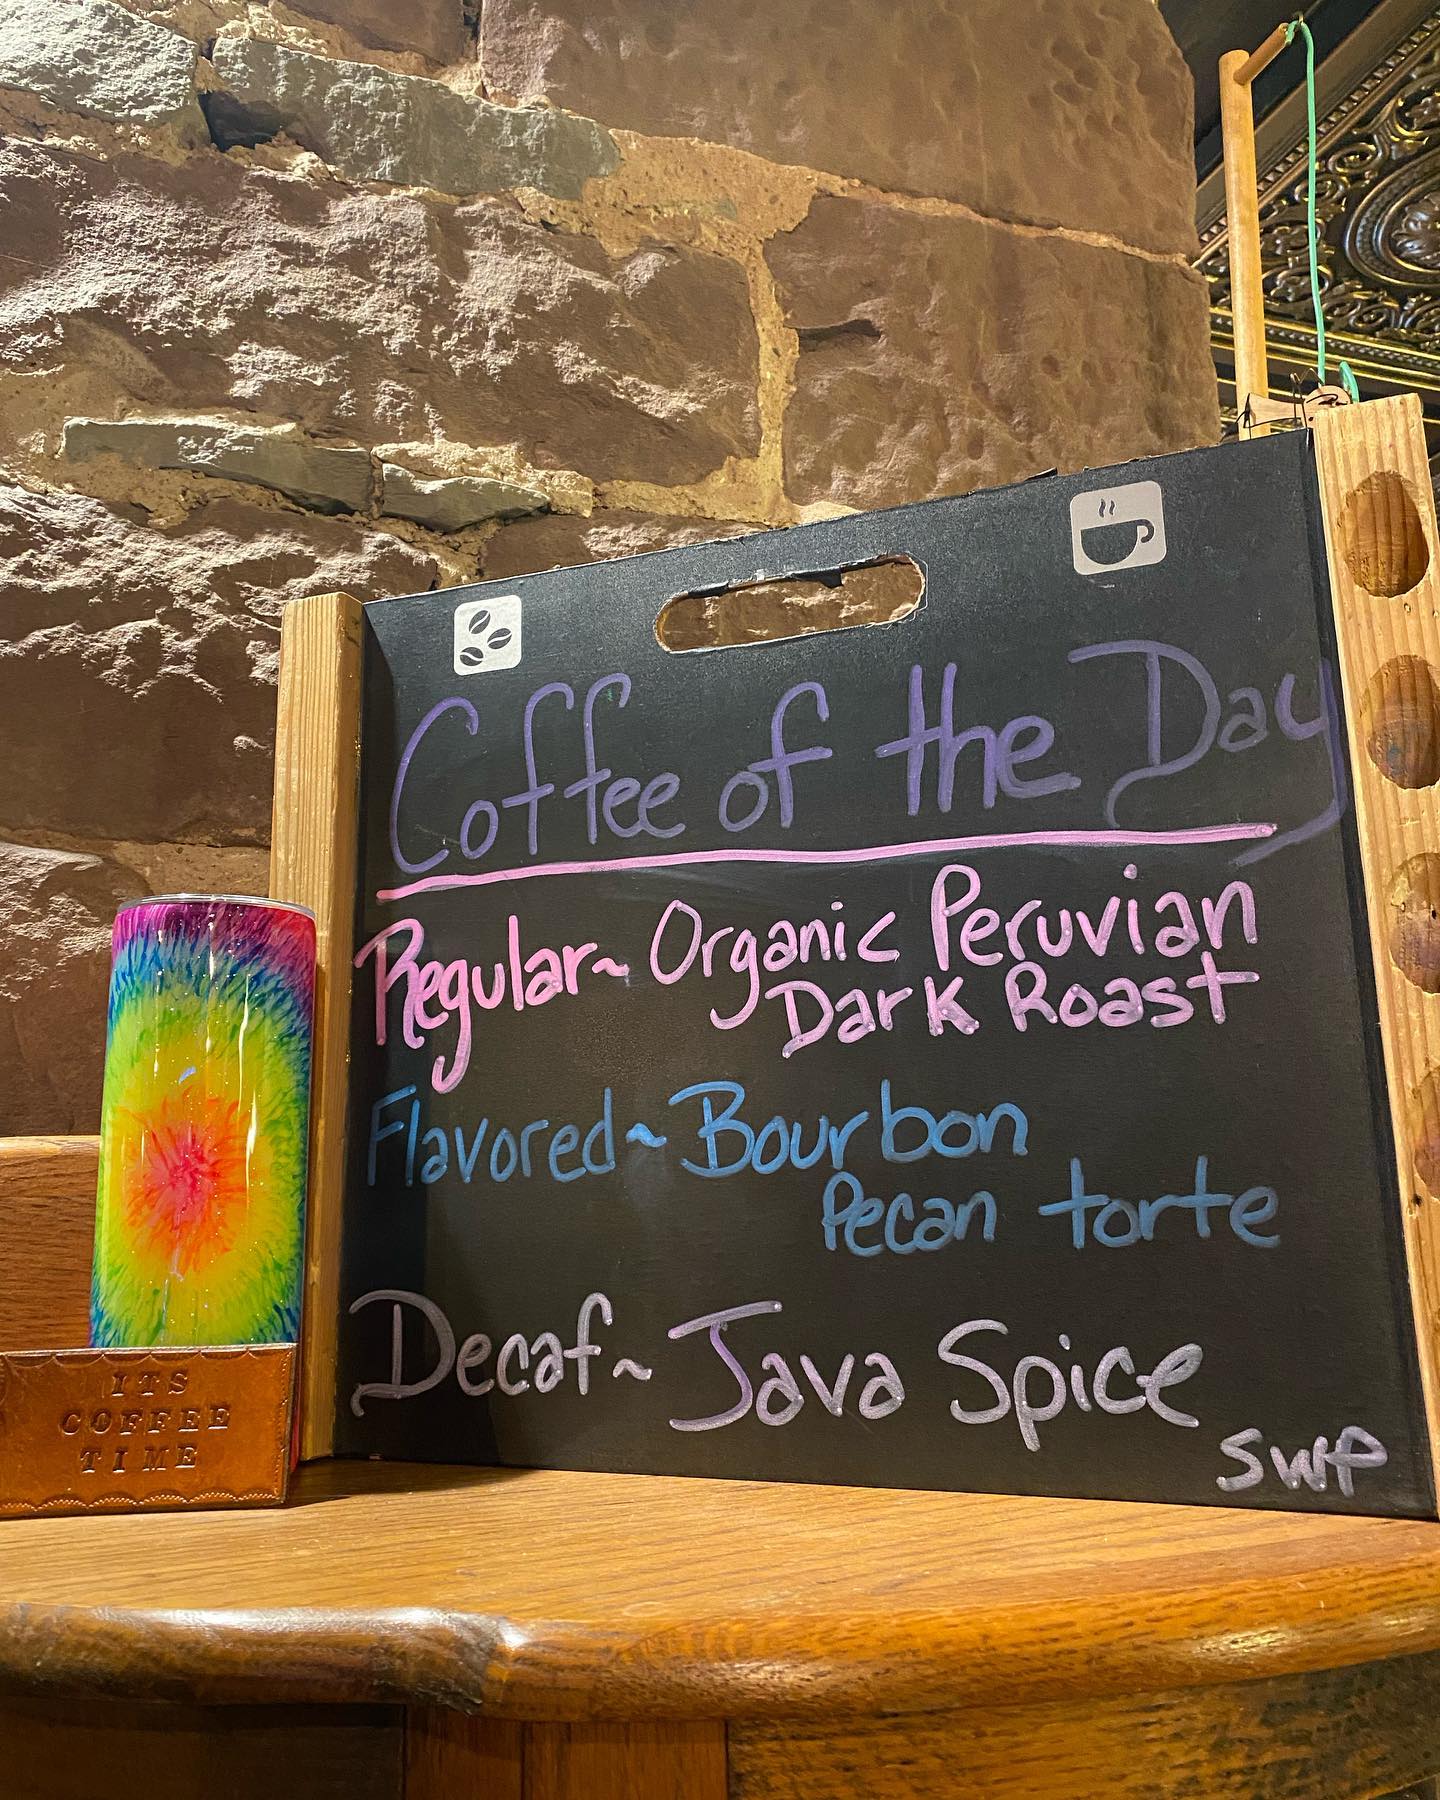 Coffee of the Day
Regular~ Organic Peruvian
Dark Roast
Flavored~ Bourbon
Pecan torte
Decaf~ Java Spice
SWP
ITS
COFFEE
TIME